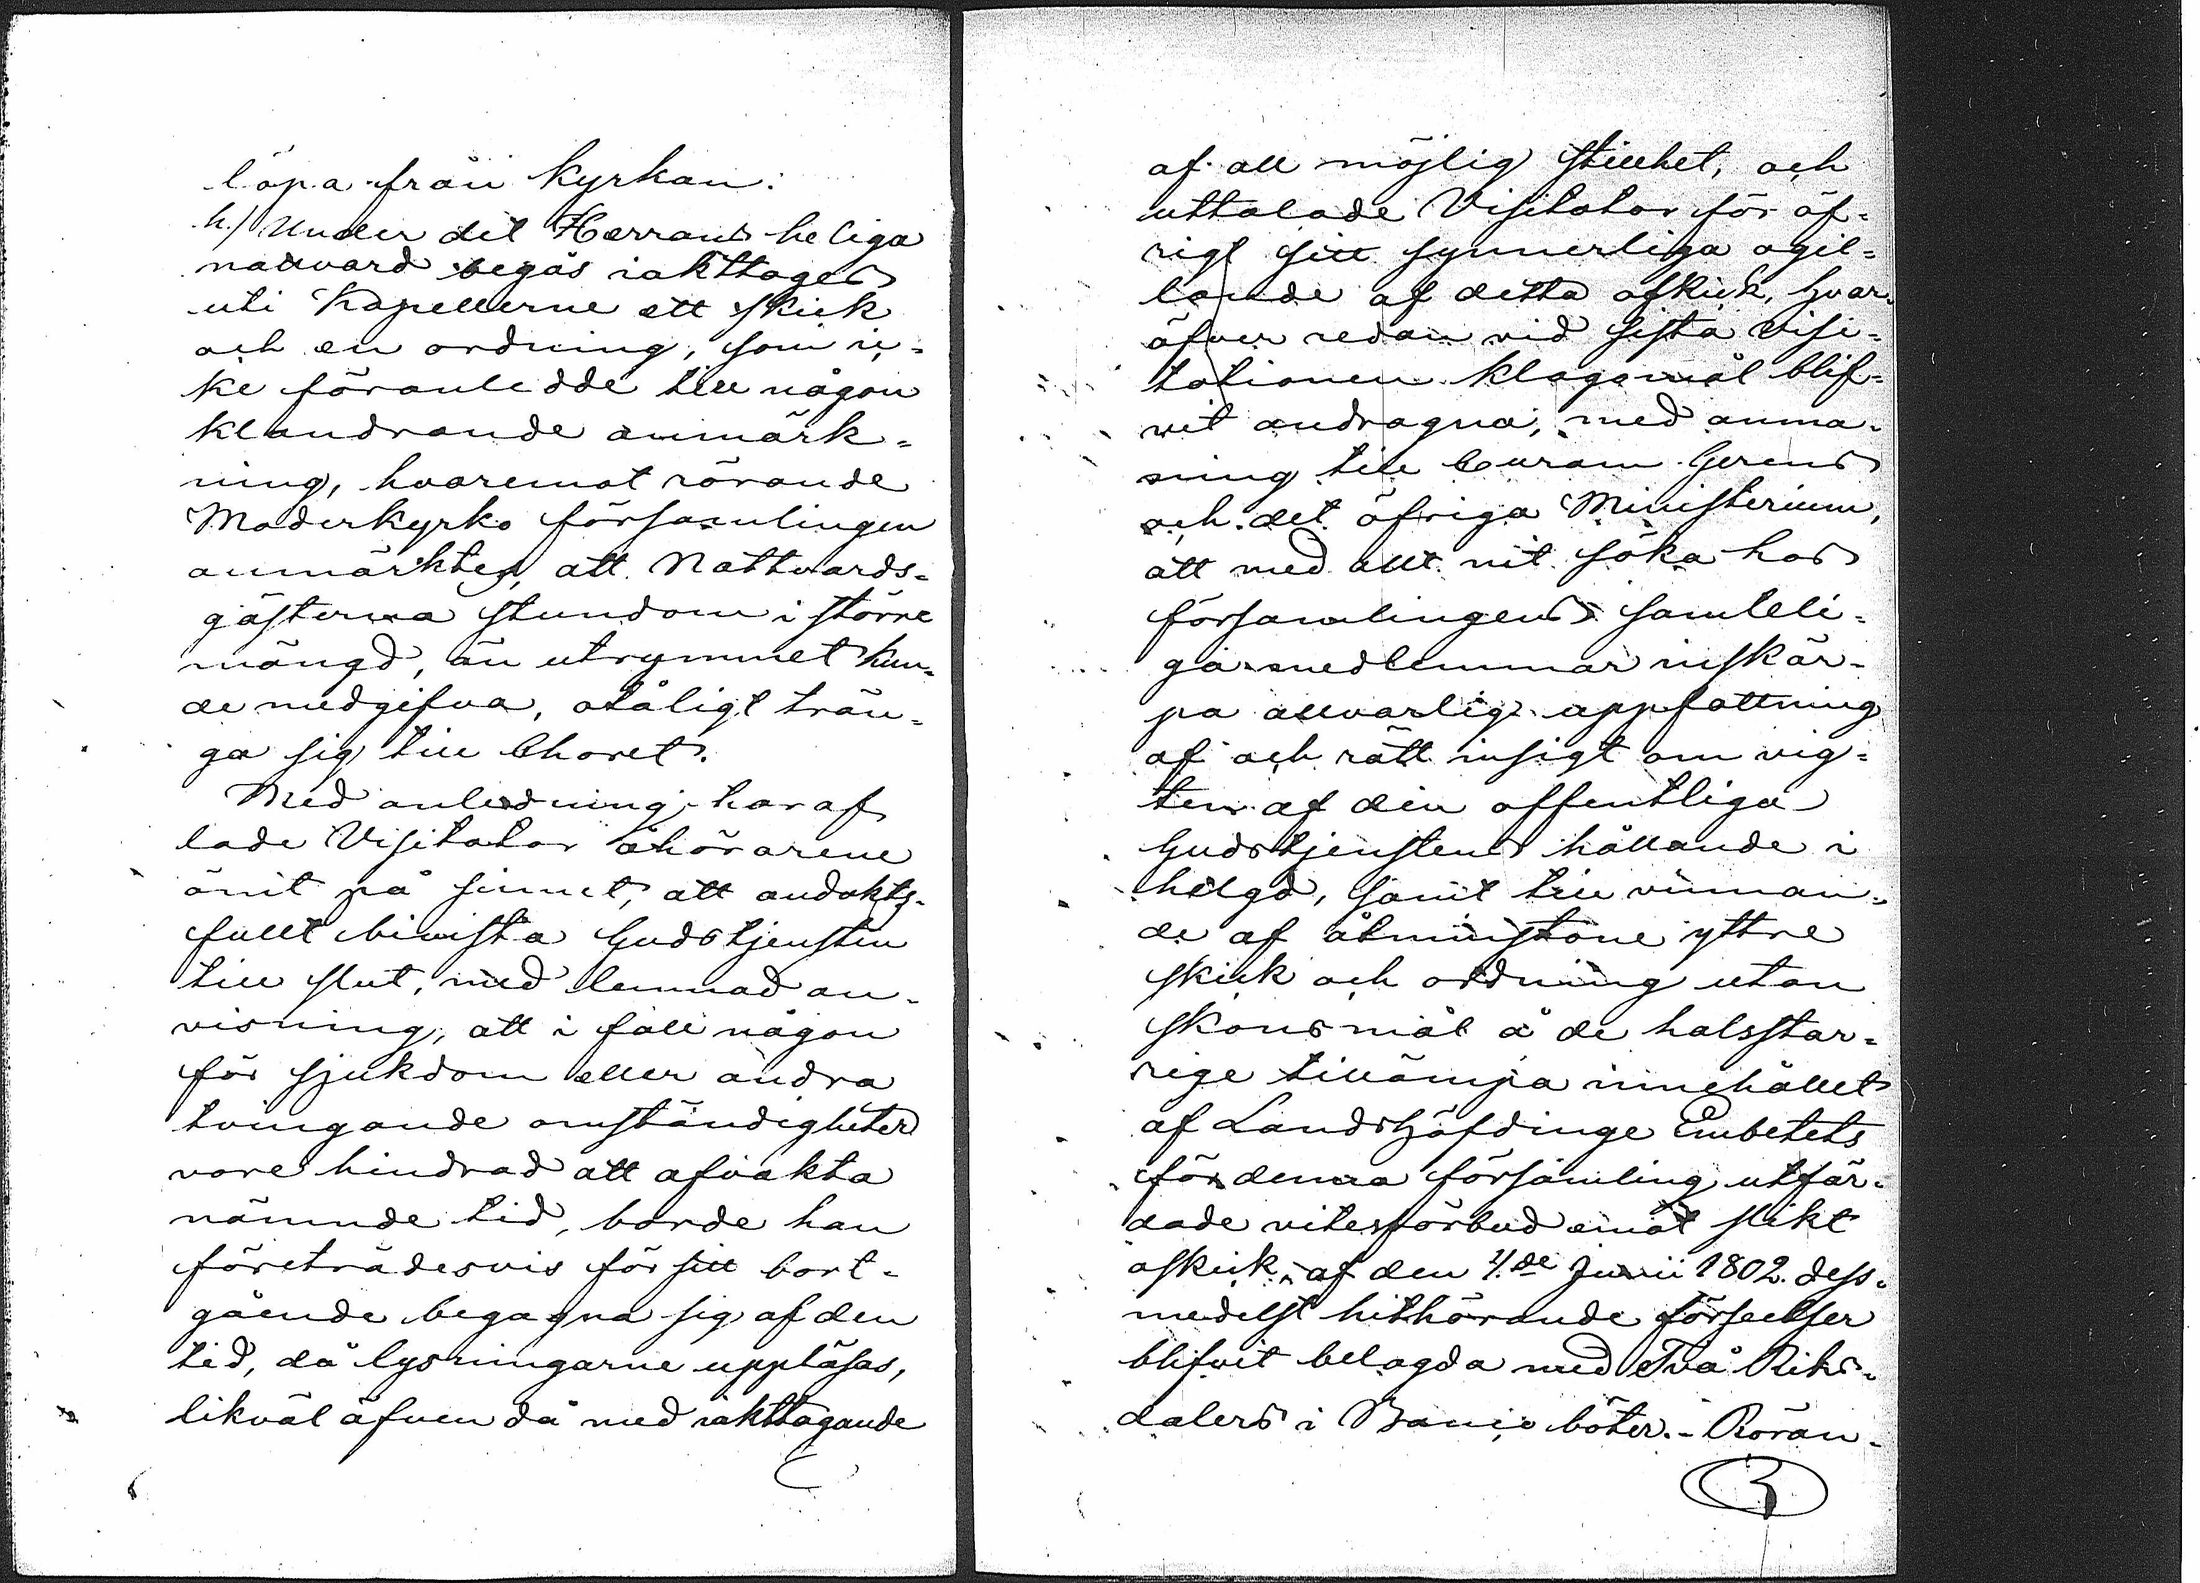 löpa från kyrkan.
h.) Under det Herrans heliga
nattvard begås iakttages
uti Kapellerne ett skick
och en ordning, som ic=
ke föranledde till någon
klandrande anmärk=
ning, hvaremot rörande
Moderkyrko församlingen
anmärktes, att Nattvards=
gästerna stundom i större
mängd, än utrymmet kun=
de medgifva, otåligt trän=
ga sig till Choret.
Med anledning haraf
lade Visitator åhörarene
ömt på sinnet, att andakts=
fullt bivista Gudstjensten
till slut, med lemnad an=
visning, att i fall någon
för sjukdom eller andra
tvingande omständigheter
vore hindrad att afvakta
nämnde tid, borde han
företrädesvis för sitt bort=
gående begagna sig af den
tid, då lysningarne uppläsas,
likväl äfven då med iakttagande
af all möjlig stillhet, och
uttalade Visitator för öf=
rigt sitt synnerliga ogil=
lande af detta oskick, hvar=
öfver redan vid sista visi=
tationen klagomål blif=
vit andragna, med anma=
ning till Curam Gerens
och det öfriga Ministerium,
att med allt nit söka hos
församlingens samteli=
ga medlemmar inskär=
pa allvarlig uppfattning
af och rätt insigt om vig=
ten af den offentliga
Gudstjenstens hållande i
helgd, samt till vinnan=
de af åtminstone yttre
skick och ordning utan
skonsmål å de halsstar=
rige tillämpa innehållet
af Landshöfdinge Embetets
för denna församling utfär=
dade vitesförbud emot slikt
oskick af den 4.de Junii 1802. dess=
medelst hithörande förseelser
blifvit belagda med Två Riks=
dalers i Banco böter. - Röran=
3